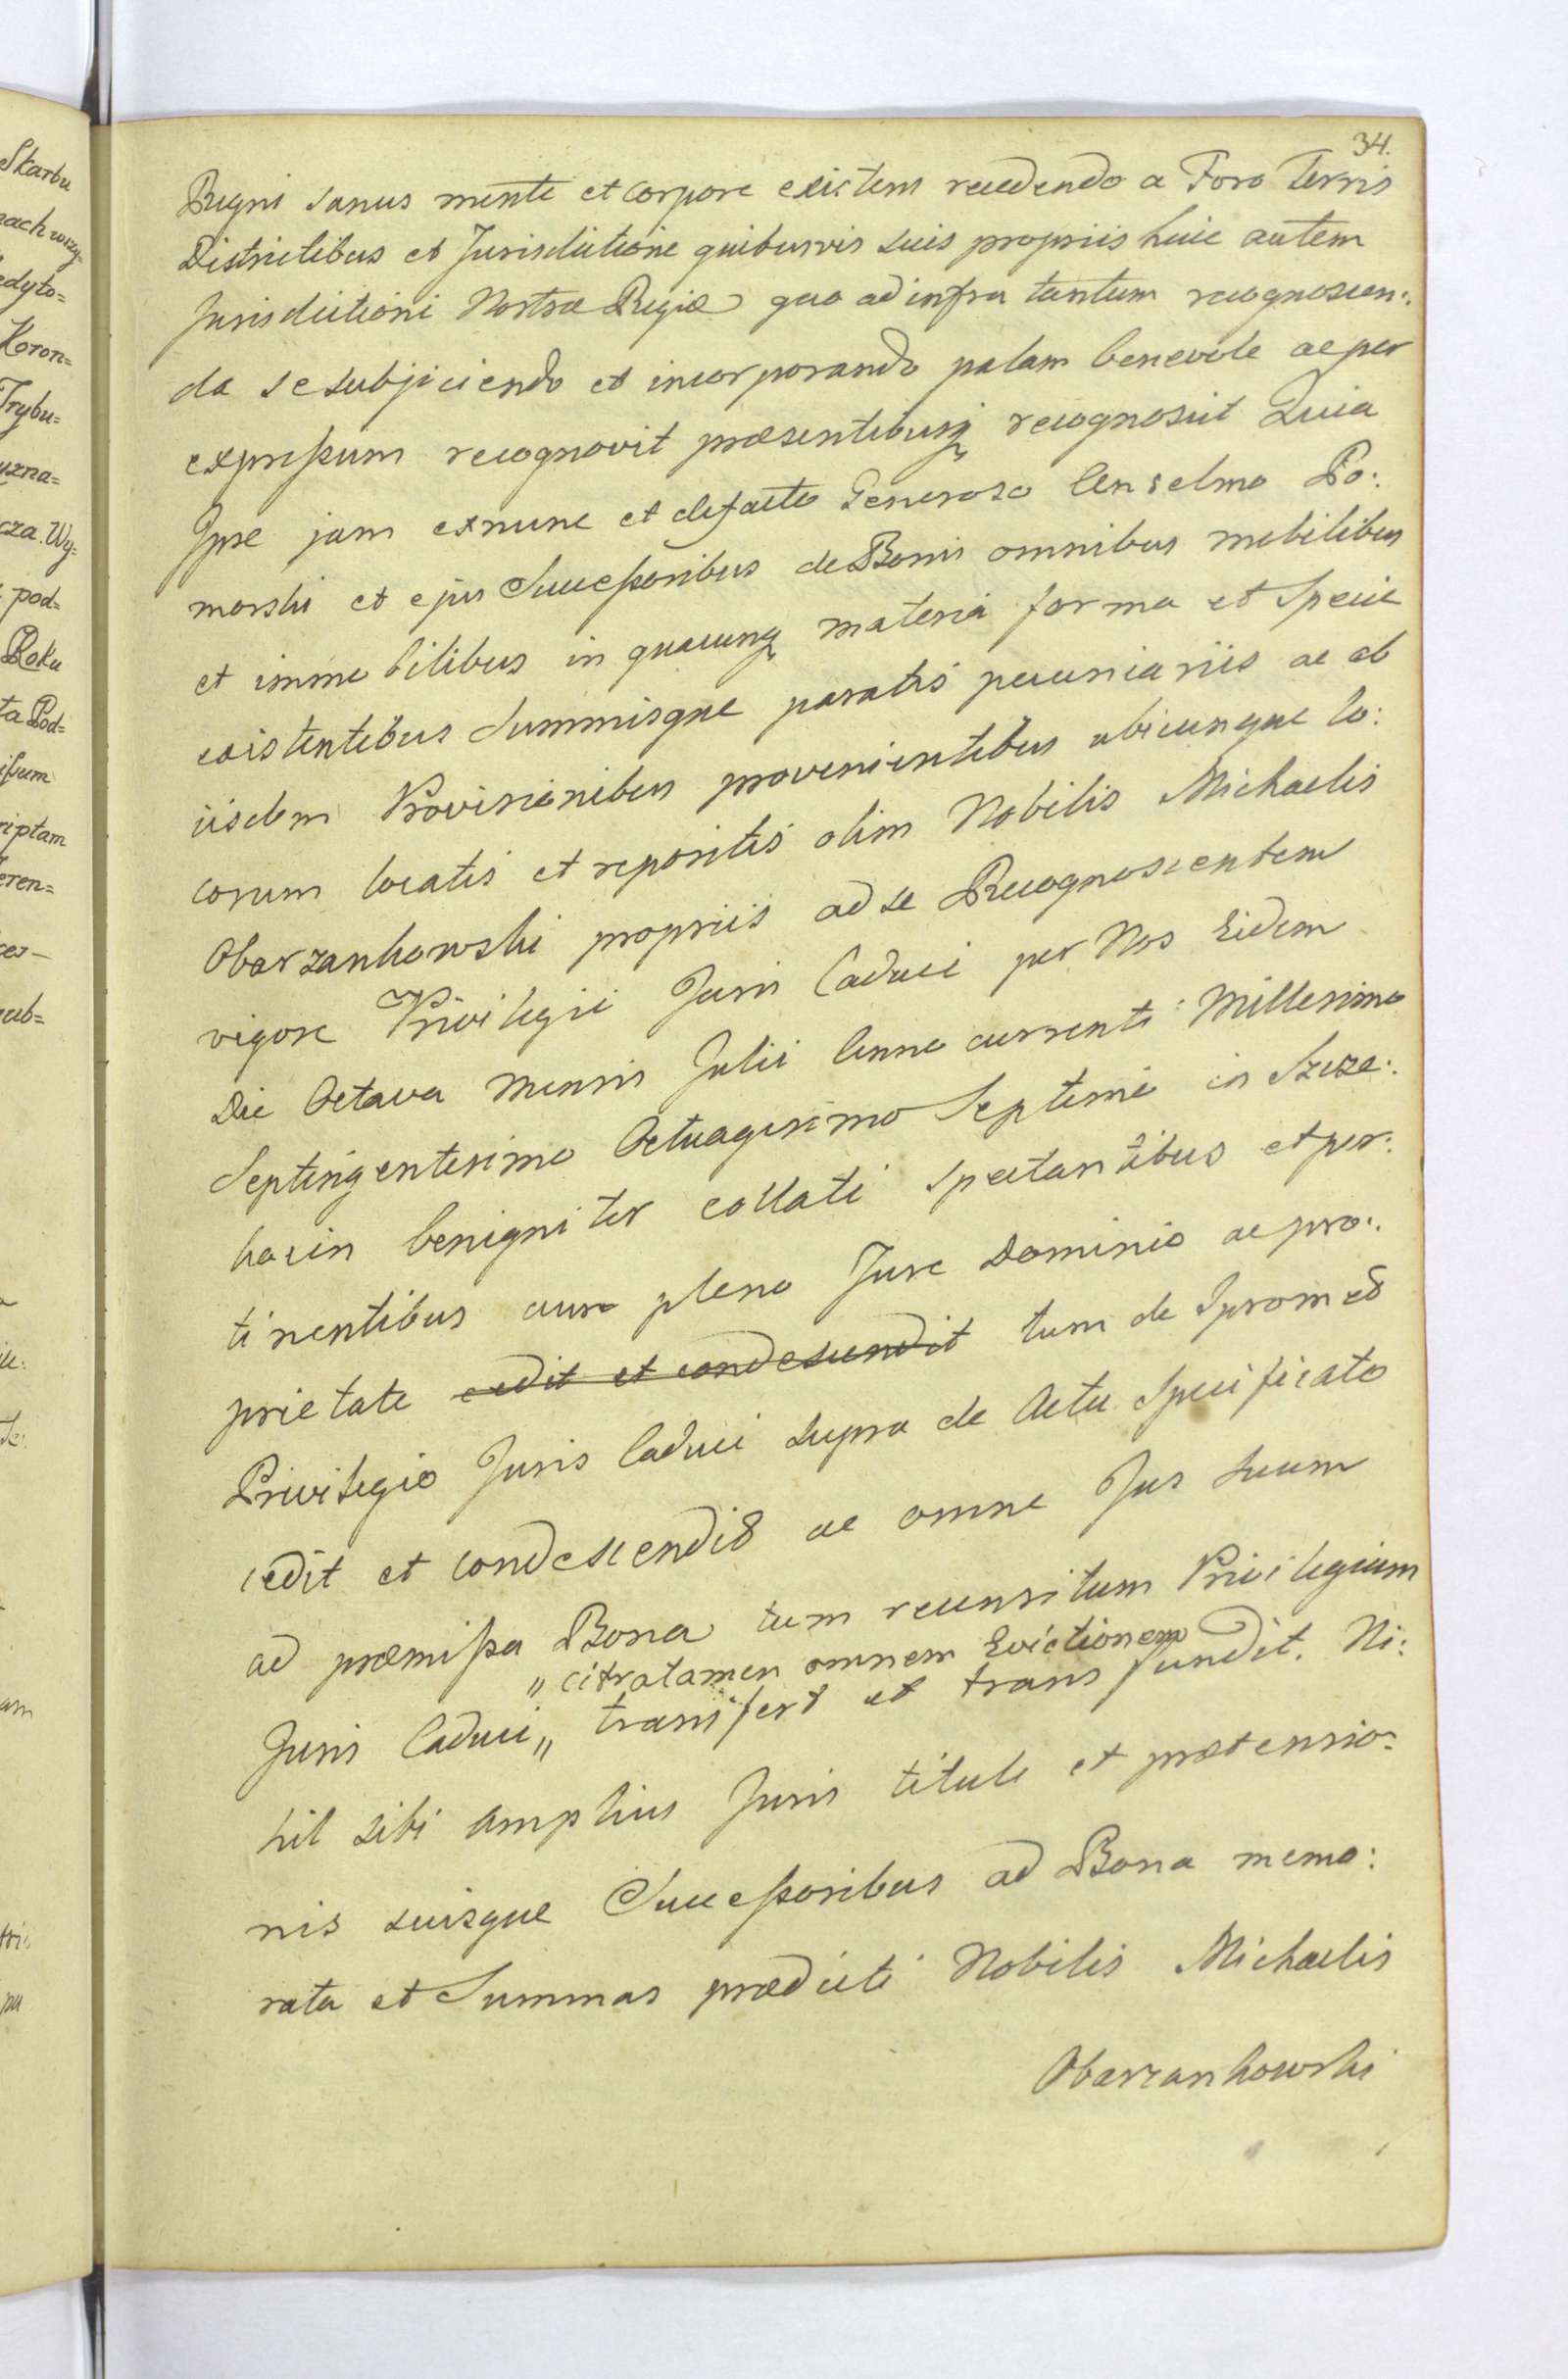 34.
Regni sanus mente et corpore existens recedendo a Foro Terris
Districtibus et Jurisdictione quibusvis suis propriis huic autem
Jurisdictioni Nostræ Regiæ quo ad infra tantum recognoscen:
da se subjiciendo et incorporando palam benevole ac per
expreſsum recognovit præsentibusq recognoscit Quia
Ipse jam exnunc et defacto Generoso Anselmo Po:
morski et ejus Succeſsoribus de Bonis omnibus mobilibus
et immobilibus in quacunq materia forma et Specie
existentibus Summisque paratis pecuniariis ac ab
iisdem Provisionibus provenientibus ubicunque lo:
corum locatis et repositis olim Nobilis Michaelis
Obarzankowski propriis ad se Recognoscentem
vigore Privilegii Juris Caduci per Nos Eidem
Die Octava Mensis Julii Anno currenti Millesimo
Septingentesimo Octuagesimo Septimo in Szcze:
kocin benigniter collati Spectantibus et per:
tinentibus cum pleno Jure Dominio ac pro:
prietate cedit et condescendit tum de Ipsomet
Privilegio Juris Caduci supra de Actu Specificato
cedit et condescendit ac omne Jus suum
ad præmiſsa Bona tum recensitum Privilegium
„ citra tamen omnem Evictionem
Juris Caduci „ transfert et transfundit. Ni:
hil sibi amplius Juris tituli et prætensio:
nis suisque Succeſsoribus ad Bona memo:
rata et Summas prædicti Nobilis Michaelis
Obarzankowski
Skarbu
edyto=
Koron=
Trybu=
uzna=
cza. Wy=
pod=
Roku
ta Pod=
iſsum
riptam
eren=
ces—
ub=